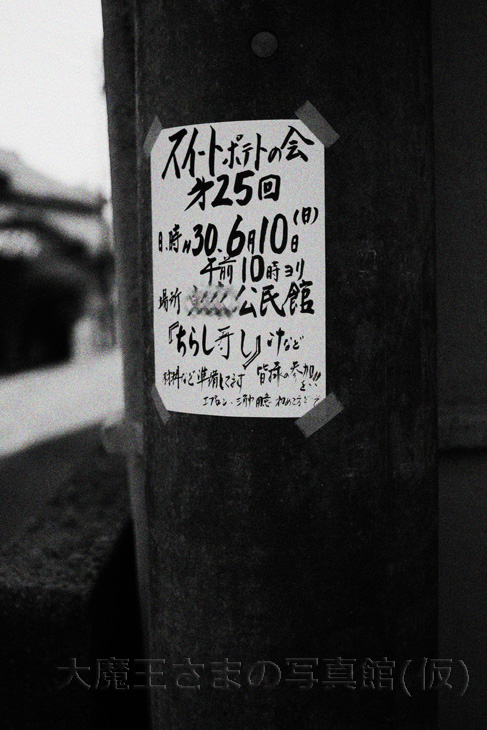 スイートポテトの会
才25回
日.時〃30.6月10日(日)
午前10時ヨリ
場所 公民館
『ちらし寿し』汁など
材料など準備して〼 皆様の参加
を!!
エプロン、三角巾用意
大魔王さまの写真館(仮)